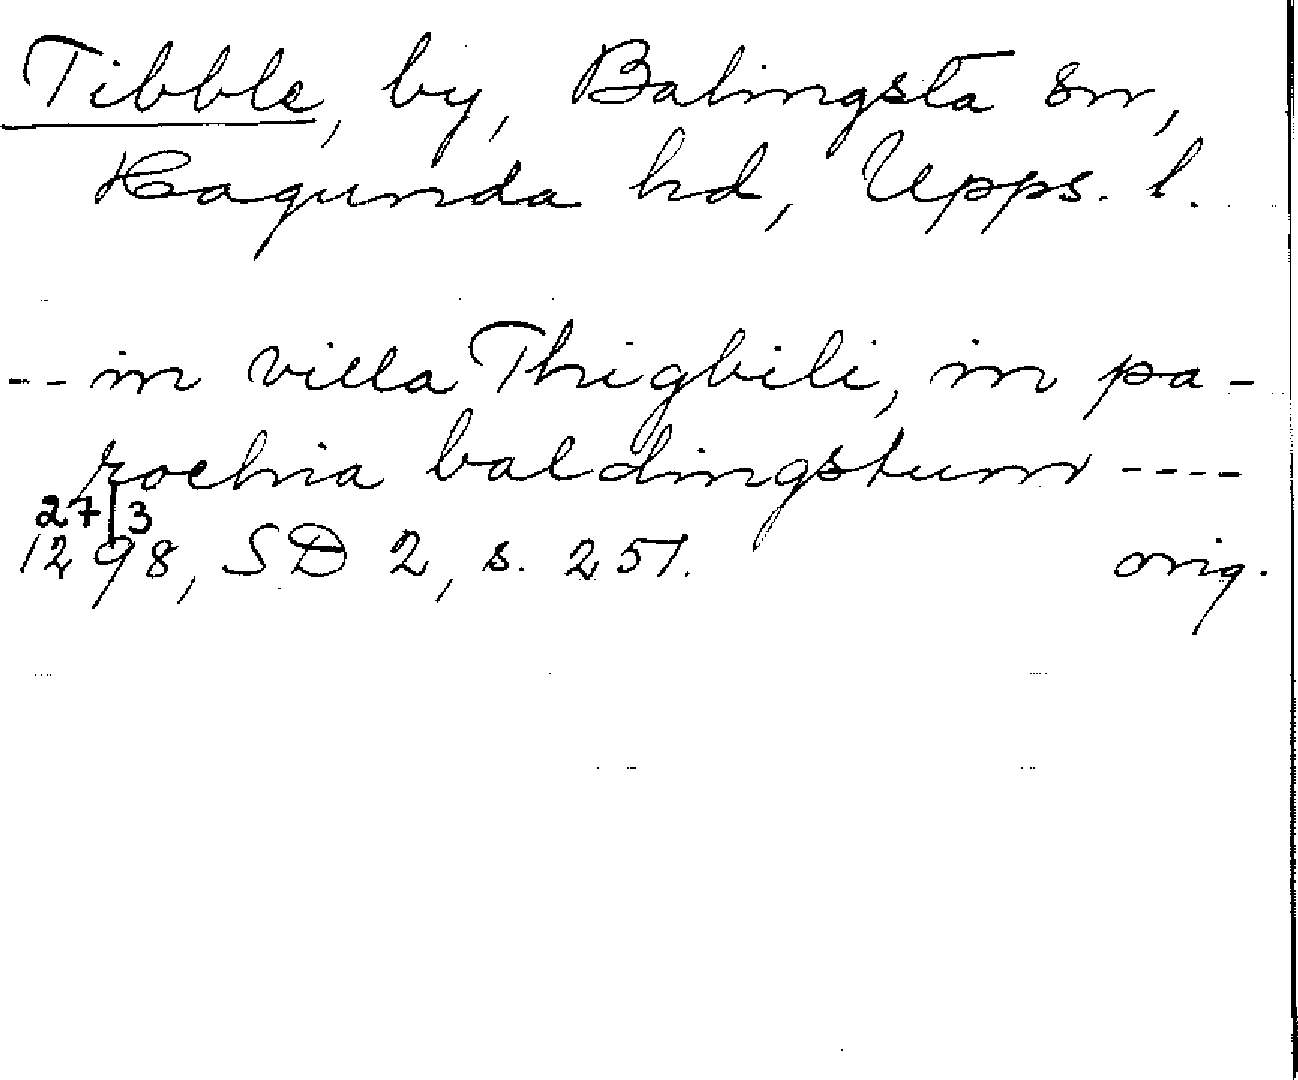 Tibble, by, Balingsta sn,
Hagunda hd, Upps. l.
-- in villa Thigbili, in pa-
rochia baldingstum ----
27/3
1298, SD 2, s. 251. orig.